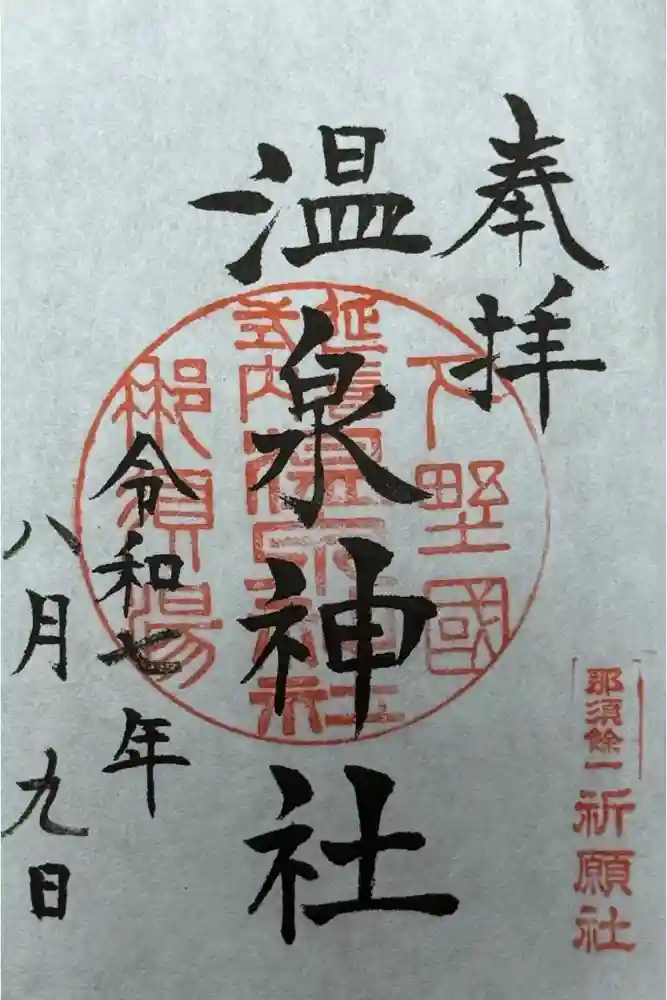 奉拝
下野國
延喜
式内
温泉神社
那須湯
令和七年
八月九日
那須餘一
祈願社